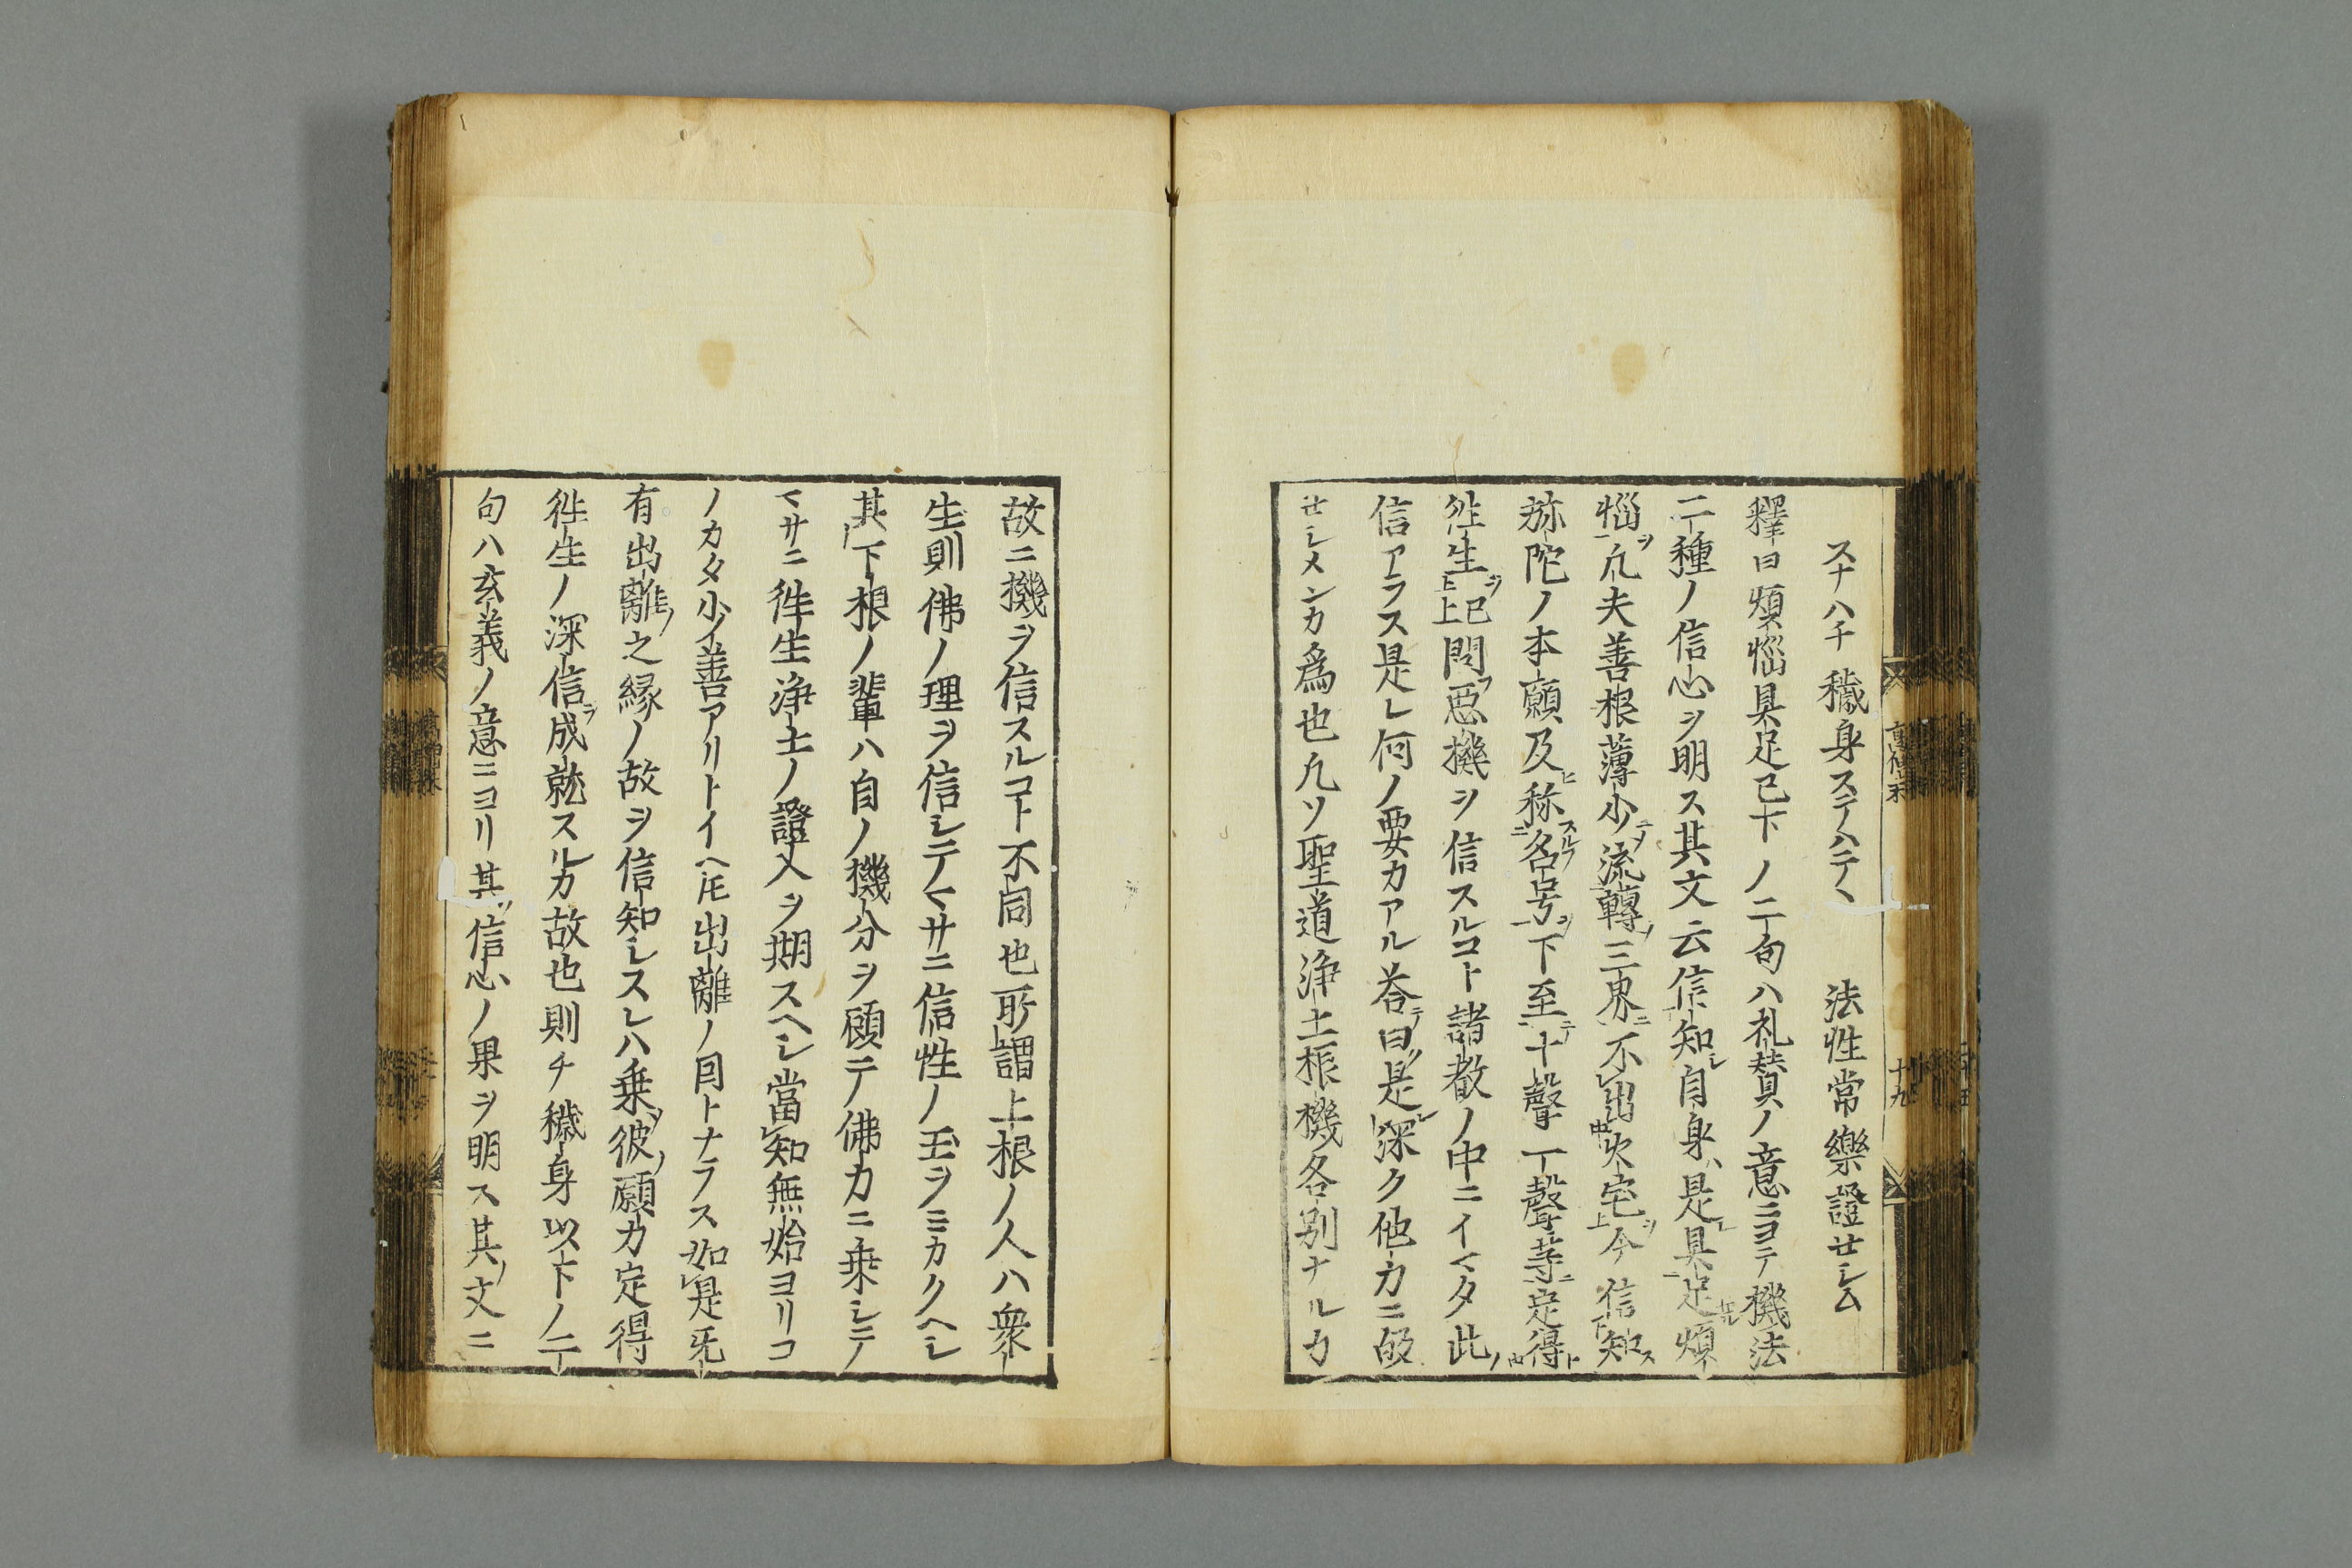 スナハチ穢身ステハテヽ　法性常樂證せシム
釋曰煩惱具足已下ノ二句ハ礼賛ノ意ニヨテ機法
二種ノ信心ヲ明ス其文云信知シ自身ハ是レ具足煩
惱ヲ凡夫善根薄少ニメ流轉三界ニ不出火宅ヲ今信知ス
弥陀ノ本願及ヒ称スルフ名号ヲ下至テ十聲一聲等ニ定得ト
徃生ヲ已上問フ惡機ヲ信スルコト諸教ノ中ニイマタ此ノ
信アラス是レ何ノ要カアル荅テ曰ク是レ深ク他力ニ皈
せシメンカ為也凡ソ聖道浄土根機各別ナルカ
故ニ機ヲ信スルコト不同也所謂上根ノ人ハ衆
生則佛ノ理ヲ信シテマサニ信性ノ玉ヲミカクヘシ
其下根ノ輩ハ自ノ機分ヲ顧テ佛力ニ乗シテ
マサニ徃生浄土ノ證入ヲ期スヘシ當知無始ヨリコ
ノカタ少善アリトイヘ𪜈出離ノ因トナラス如是无
有出離ノ之縁ノ故ヲ信知シスレハ乗ヲ彼ノ願力定得
徃生ノ深信ヲ成就スルカ故也則チ穢身以下ノ二
句ハ玄義ノ意ニヨリ其ノ信心ノ果ヲ明ス其ノ文ニ
十九